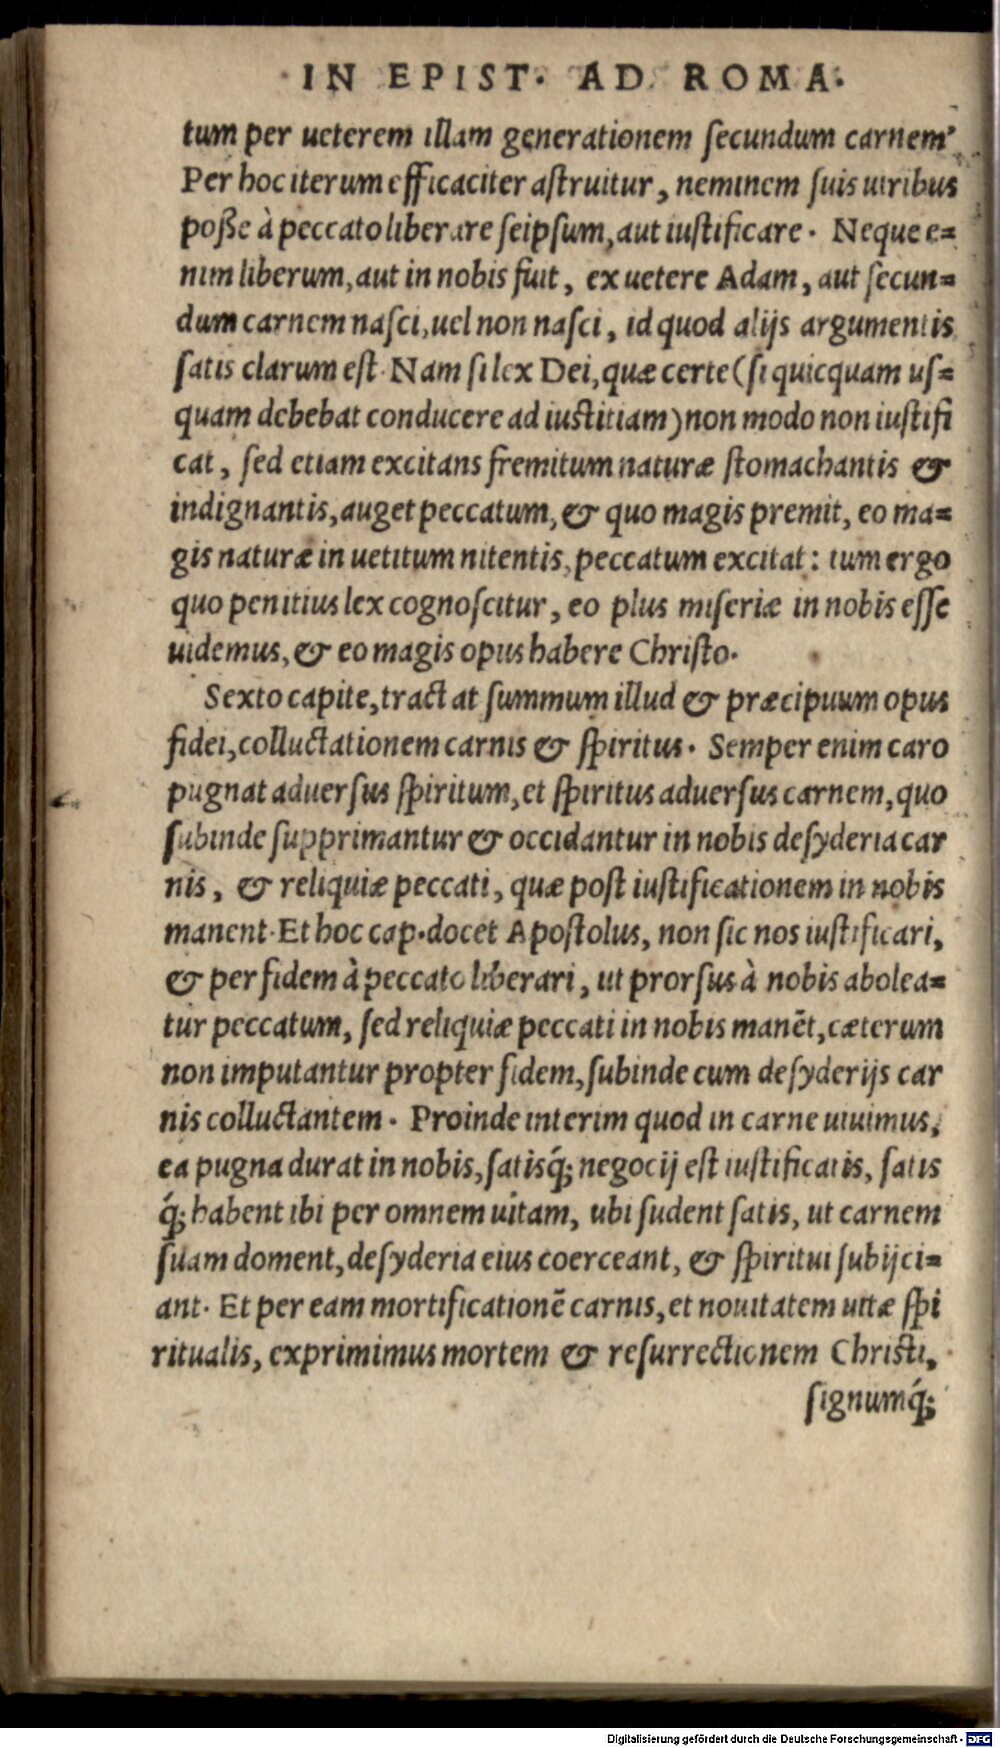 IN EPIST. AD ROMA.
tum per ueterem illam generationem ſecundum carnem?
Per hoc iterum efficaciter aſtruitur, neminem ſuis uiribus
poſſe à peccato liberare ſeipſum, aut iuſtificare. Neque e=
nim liberum, aut in nobis fuit, ex uetere Adam, aut ſecun=
dum carnem naſci, uel non naſci, id quod alijs argumentis
ſatis clarum eſt. Nam ſi lex Dei, quæ certe (ſi quicquam uſ=
quam debebat conducere ad iuſtitiam) non modo non iuſtifi
cat, ſed etiam excitans fremitum naturæ ſtomachantis &
indignantis, auget peccatum, & quo magis premit, eo ma=
gis naturæ in uetitum nitentis, peccatum excitat: tum ergo
quo penitius lex cognoſcitur, eo plus miſeriæ in nobis eſſe
uidemus, & eo magis opus habere Chriſto.
Sexto capite, tractat ſummum illud & præcipuum opus
fidei, colluctationem carnis & ſpiritus. Semper enim caro
pugnat aduerſus ſpiritum, et ſpiritus aduerſus carnem, quo
ſubinde ſupprimantur & occidantur in nobis deſyderia car
nis, & reliquiæ peccati, quæ poſt iuſtificationem in nobis
manent. Et hoc cap. docet Apoſtolus, non ſic nos iuſtificari,
& per fidem à peccato liberari, ut prorſus à nobis abolea=
tur peccatum, ſed reliquiæ peccati in nobis manẽt, cæterum
non imputantur propter fidem, ſubinde cum deſyderijs car
nis colluctantem. Proinde interim quod in carne uiuimus,
ea pugna durat in nobis, ſatisq́; negocij eſt iuſtificatis, ſatis
q́; habent ibi per omnem uitam, ubi ſudent ſatis, ut carnem
ſuam doment, deſyderia eius coerceant, & ſpiritui ſubijci=
ant. Et per eam mortificationẽ carnis, et nouitatem uitæ ſpi
ritualis, exprimimus mortem & reſurrectionem Chriſti,
ſignumq́;
Digitalisierung gefördert durch die Deutsche Forschungsgemeinschaft - DFG